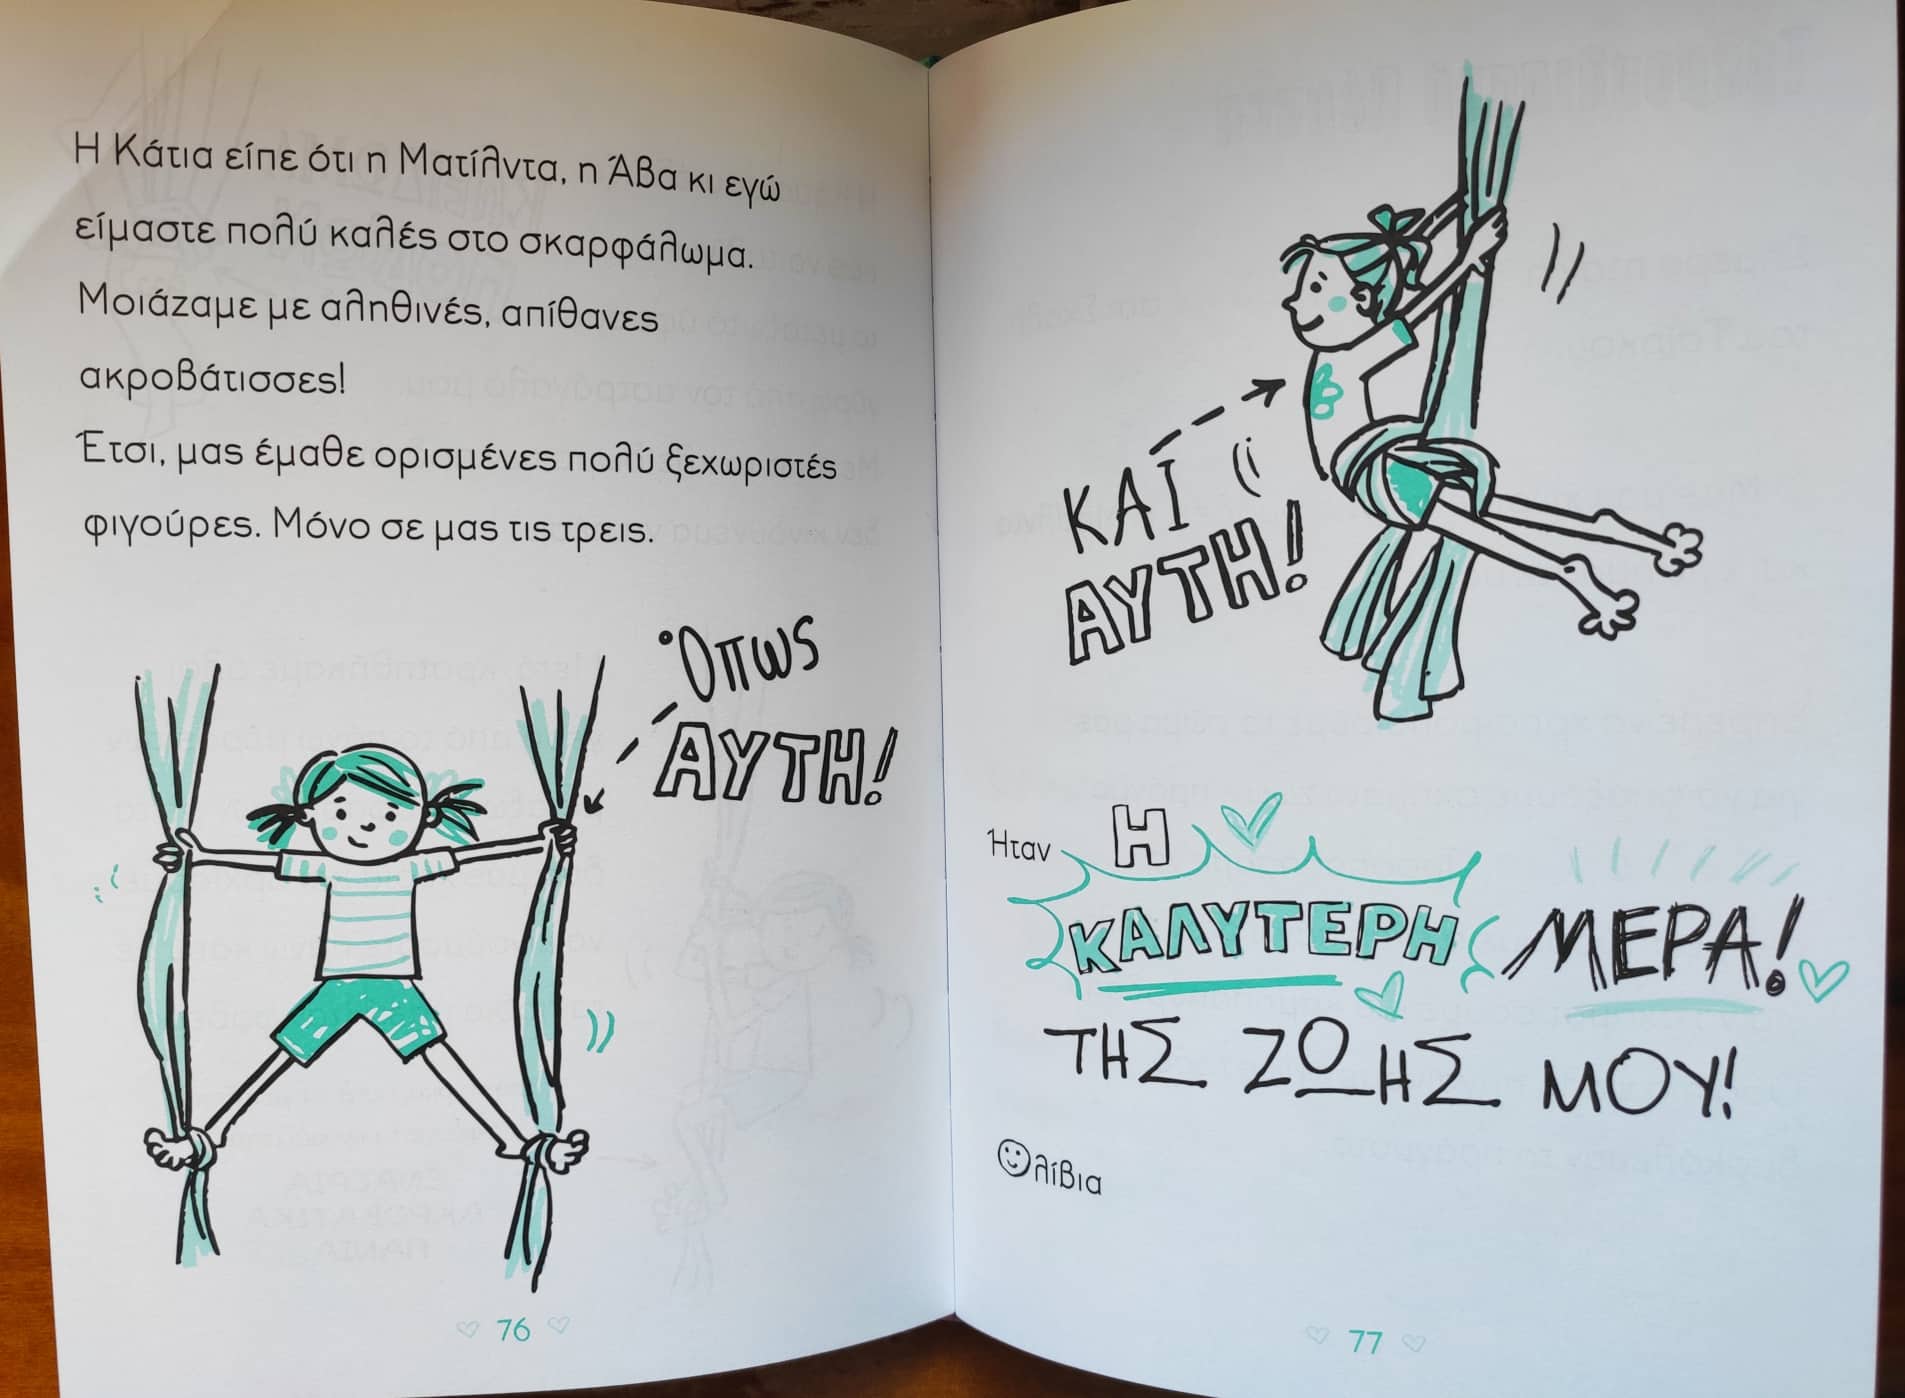 Η Κάτια είπε ότι η Ματίλντα, η Άβα κι εγώ
είμαστε πολύ καλές στο σκαρφάλωμα.
Μοιάζαμε με αληθινές, απίθανες
ακροβάτισσες!
Έτσι, μας έμαθε ορισμένες πολύ ξεχωριστές
φιγούρες. Μόνο σε μας τις τρεις.
Όπως
ΑΥΤΗ!
76
ΚΑΙ
ΑΥΤΗ!
Ήταν Η
ΚΑΛΥΤΕΡΗ ΜΕΡΑ!
ΤΗΣ ΖΩΗΣ ΜΟΥ!
Ολίβια
77